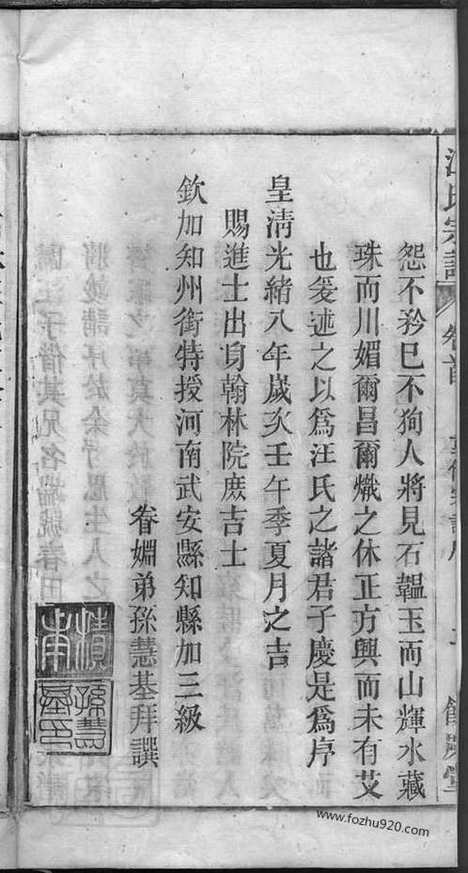 汪氏宗譜 卷首
怨不矜己不狥人將見石韞玉而山輝水藏
珠而川媚爾昌爾熾之休正方興而未有艾
也爰述之以爲汪氏之諸君子慶是爲序
皇清光緒八年歲次壬午季夏月之吉
賜進士出身翰林院庶吉士
欽加知州銜特授河南武安縣知縣加三級
眷姻弟孫慧基拜譔
孫慧基印
www.fozhu920.com